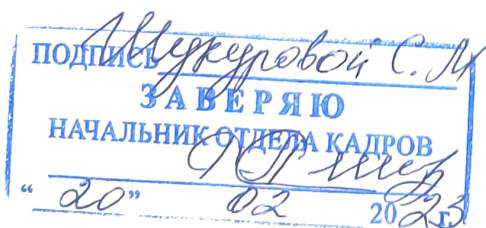 ПОДПИСЬ Шукуровой С. М
ЗАВЕРЯЮ
НАЧАЛЬНИК ОТДЕЛА КАДРОВ
“ 20 ” 02 2023 г.